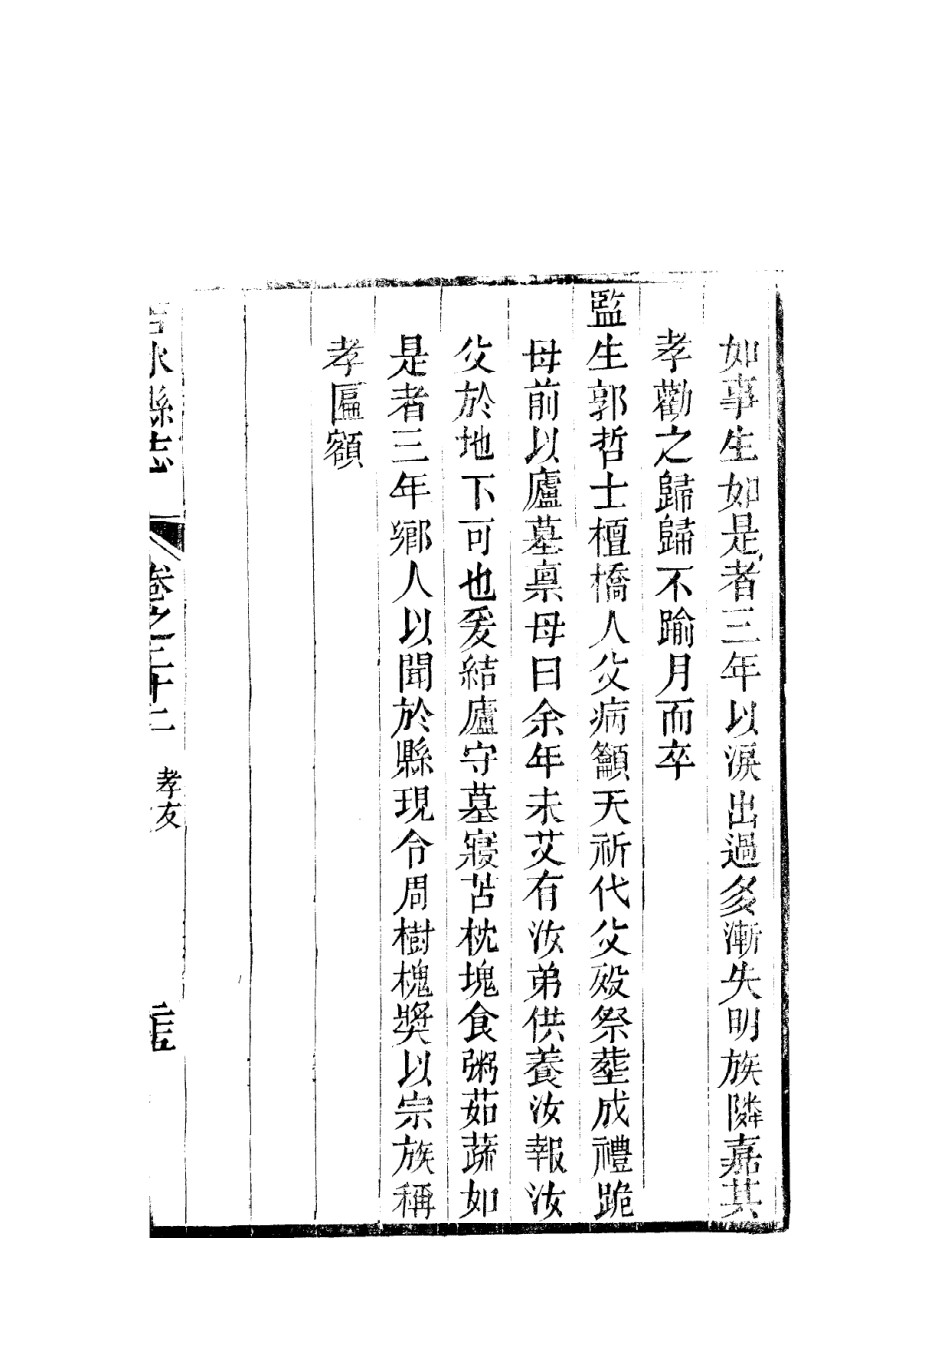 如事生如是者三年以淚出過多漸失明族隣嘉其
孝勸之歸歸不踰月而卒
監生郭哲士檀橋人父病籲天祈代父歿祭塟成禮跪
母前以廬墓禀母曰余年未艾有汝弟供養汝報汝
父於地下可也爰結廬守墓寢苫枕塊食粥茹蔬如
是者三年鄉人以聞於縣現令周樹槐奬以宗族稱
孝匾額
水縣志
卷之三十二
孝友